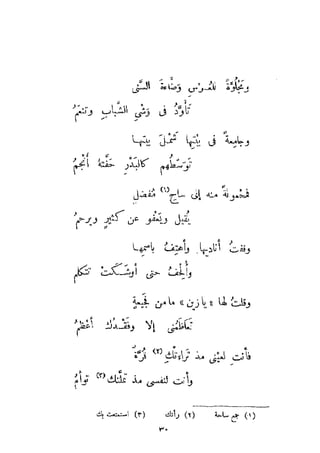 ومجلوّةً للعُرس وضّاءةَ السَّنَى
تَأَوَّدُ فى وَشْىِ الشَّبابِ وتَنعَمُ
وجامِعةً فى بَيْتِها شَمْلَ بيتها
تَوَسَّطُهم كالبَدْرِ حَفَّتْهُ أَنجُمُ
فمحمولةً منه إلى ساجِ(١) مُفضِلٍ
يُقبل ويعفو عن كثيرٍ ويرحم
وقفتُ أناديها وأهتِفُ باسمِها
وأُلحِفُ حتى أوشكَتْ تتكلم
وقلتُ لها «يا زين» ما من فجيعةٍ
تَعاظَمُنى إلا وفَقدُكِ أعظمُ
فأنتِ لعينى مذ تراءتكِ(٢) قُرَّةٌ
وأنت لنفسى مذ تملّتك(٣) توأمُ
(١) جمع ساحة (٢) رأتك (٣) استمتعت بك
٣٠